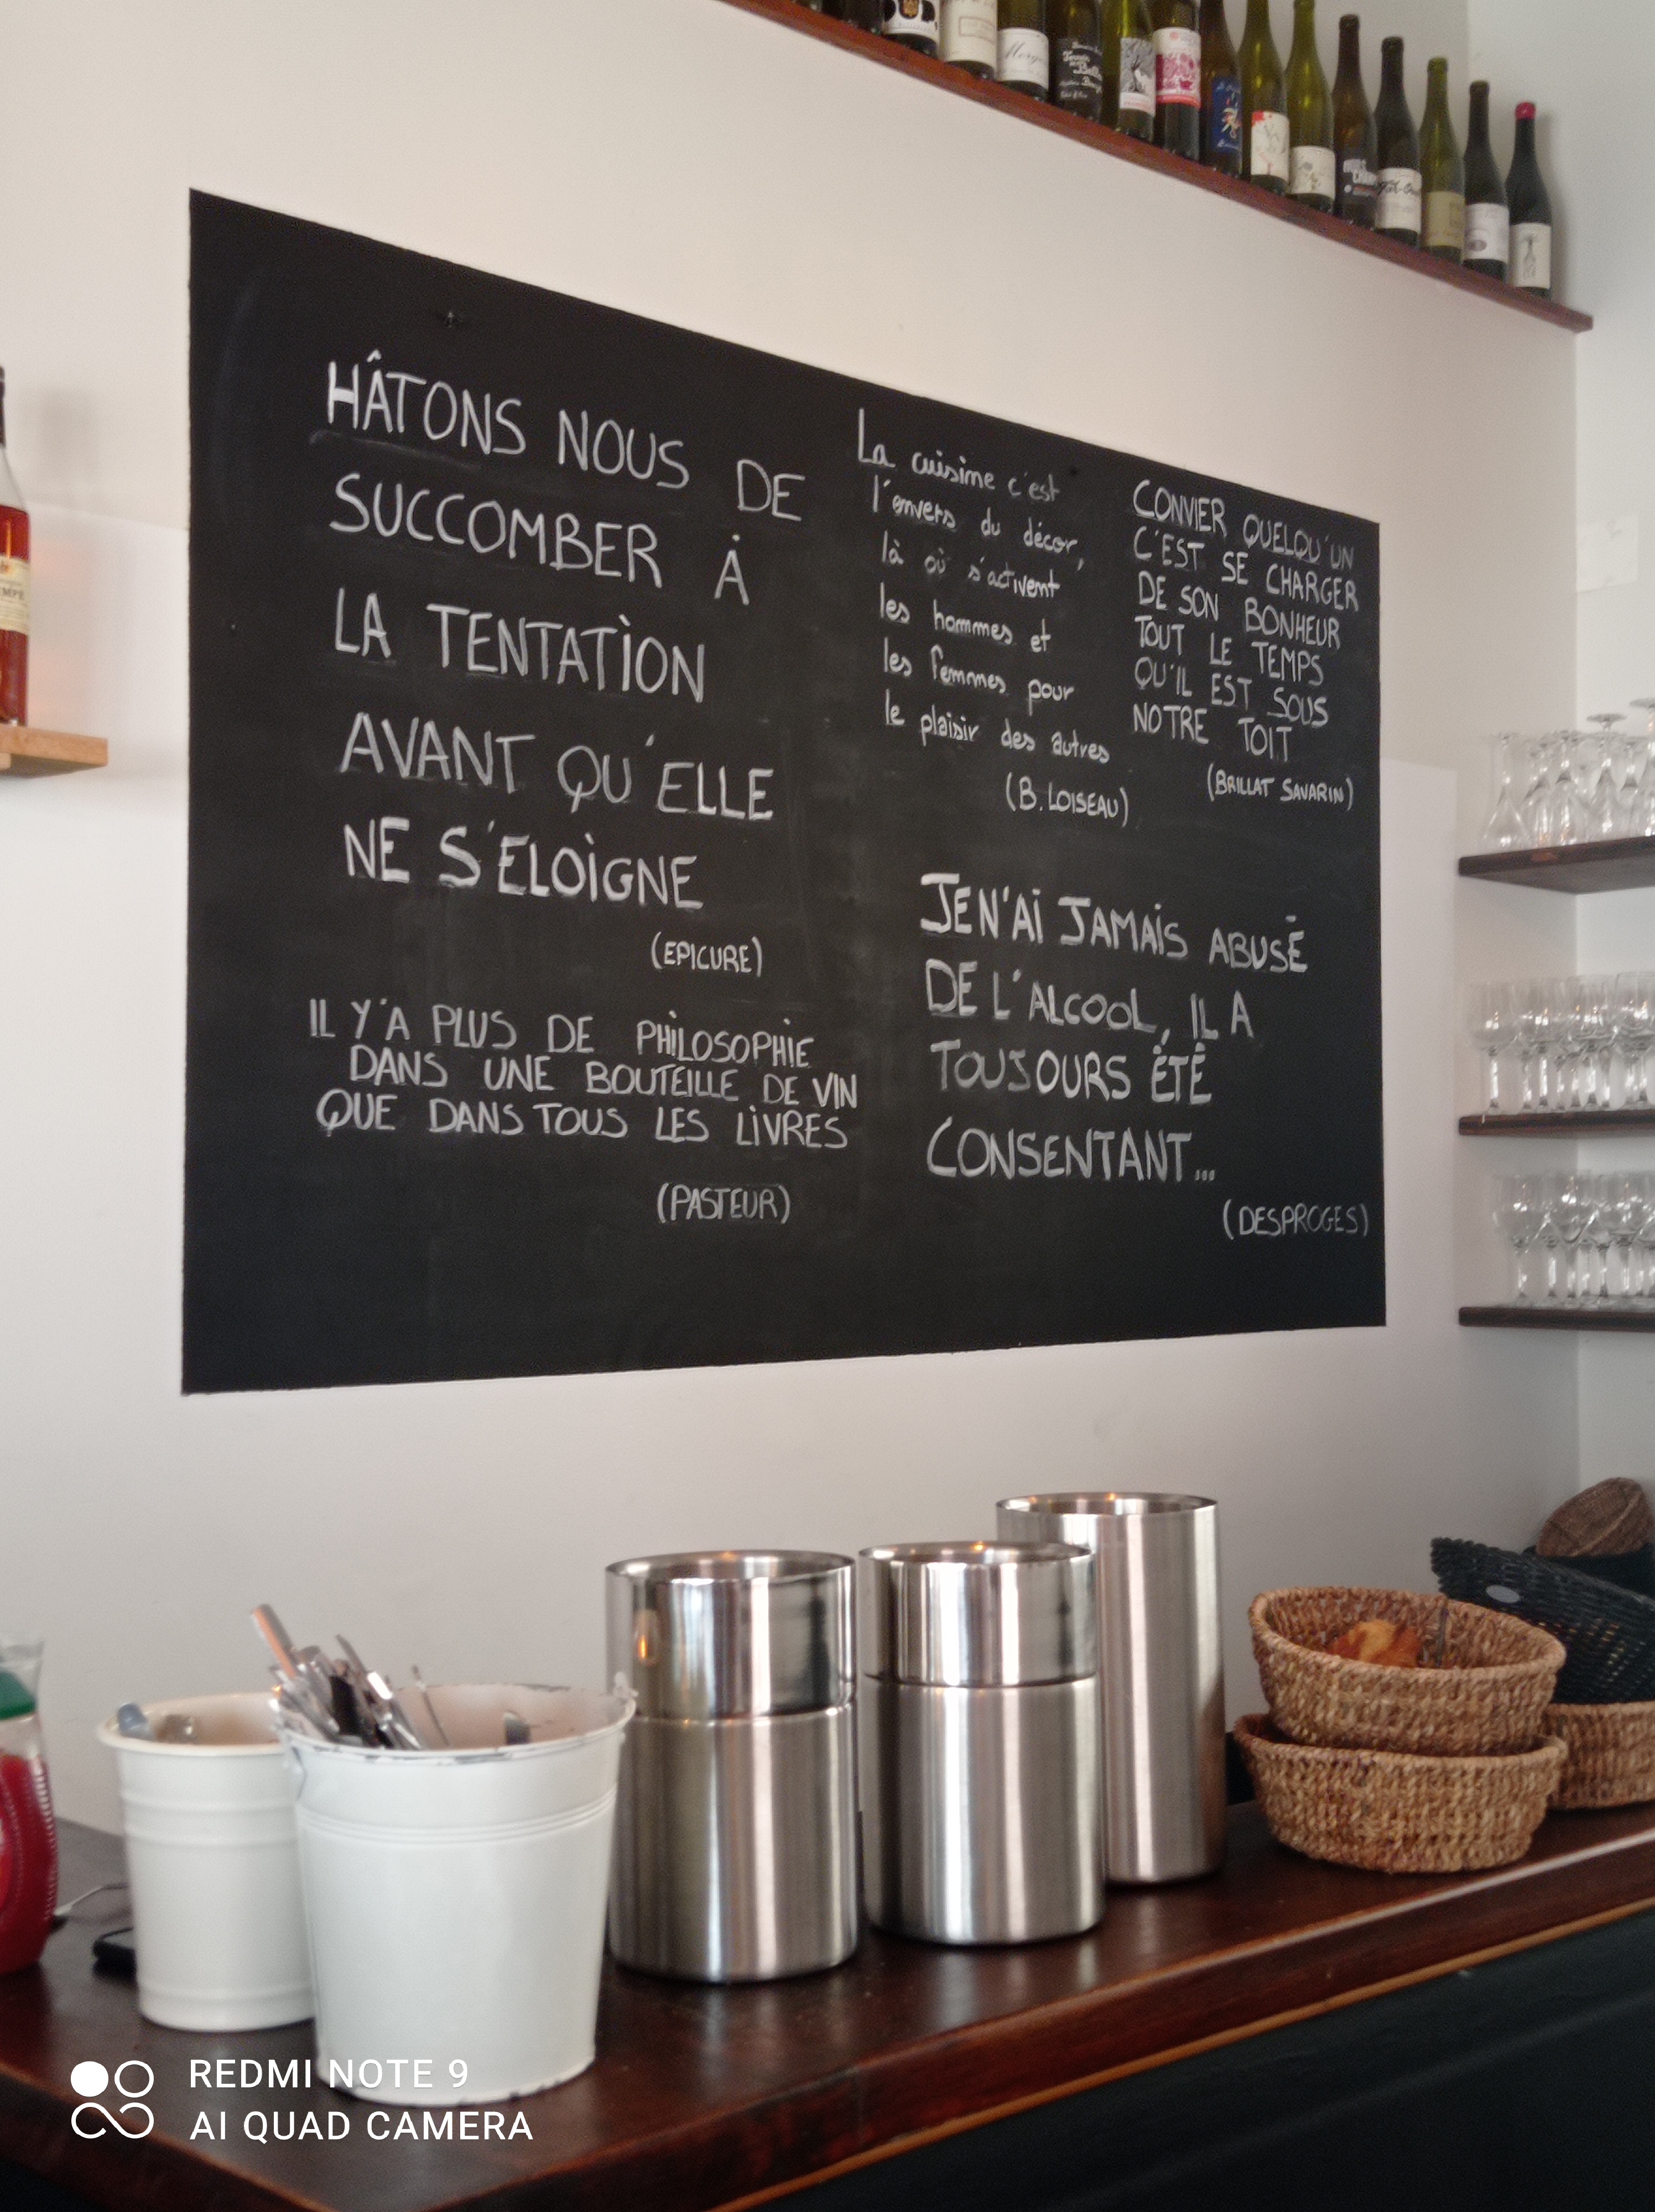 HÂTONS NOUS DE
SUCCOMBER À
LA TENTATION
AVANT QU'ELLE
NE S'ELOIGNE
(EPICURE)
IL Y'A PLUS DE PHILOSOPHIE
DANS UNE BOUTEILLE DE VIN
QUE DANS TOUS LES LIVRES
(PASTEUR)
La cuisine c'est
l'envers du décor,
là où s'activent
les hommes et
les femmes pour
le plaisir des autres
(B. LOISEAU)
CONVIER QUELQU'UN
C'EST SE CHARGER
DE SON BONHEUR
TOUT LE TEMPS
QU'IL EST SOUS
NOTRE TOIT
(BRILLAT SAVARIN)
JE N'AI JAMAIS ABUSÉ
DE L'ALCOOL, IL A
TOUJOURS ÉTÉ
CONSENTANT...
(DESPROGES)
REDMI NOTE 9
AI QUAD CAMERA